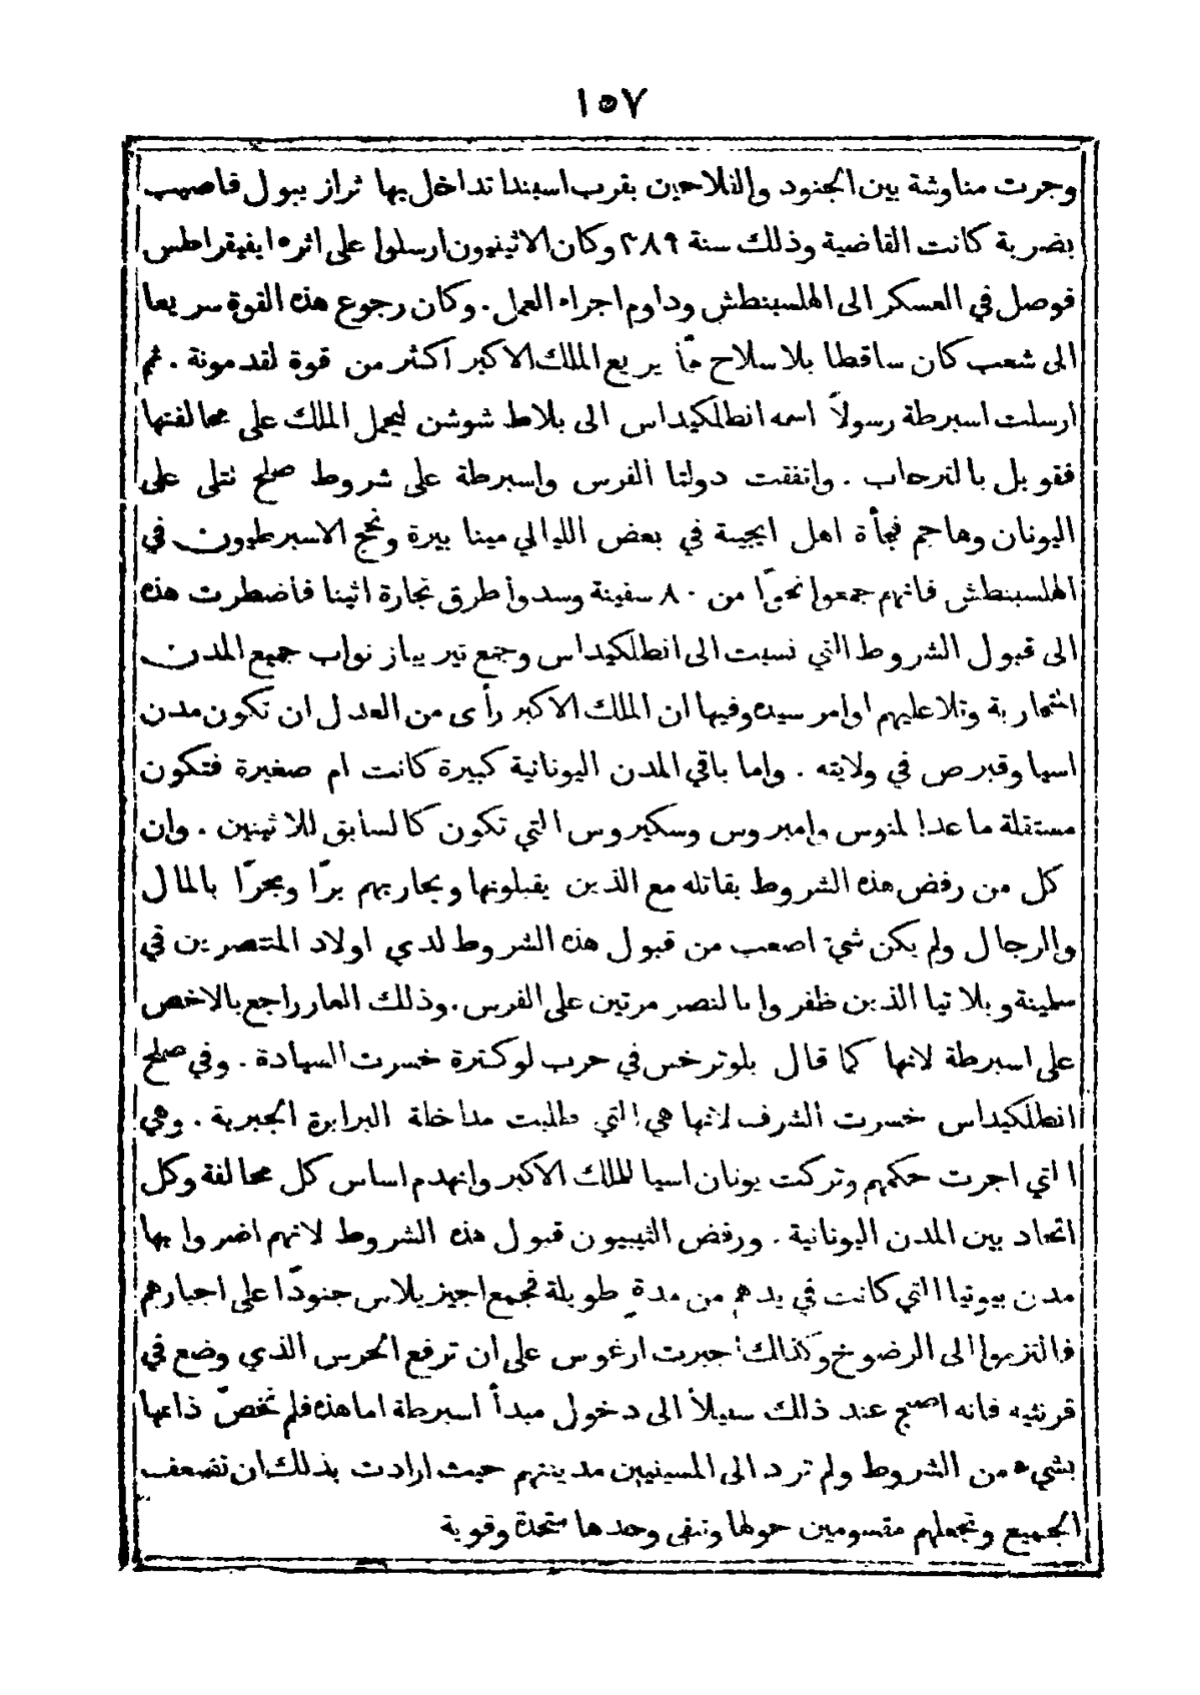 ١٥٧
وجرت مناوشة بين الجنود والفلاحين بقرب اسبندا تداخل بها ثراز يبول فاصيب
بضربة كانت القاضية وذلك سنة ٣٨٩ وكان الاثينيون ارسلوا على اثره ايفيقراطس
فوصل في العسكر الى الهلسبنطش وداوم اجراء العمل. وكان رجوع هذه القوة سريعا
الى شعب كان ساقطا بلا سلاح ممّا يريع الملك الاكبر اكثر من قوة لقدمونة . ثم
ارسلت اسبرطة رسولاً اسمه انطلكيداس الى بلاط شوشن ليحمل الملك على محالفتها
فقوبل بالترحاب . واتفقت دولتا الفرس واسبرطة على شروط صلح تتلى على
اليونان وهاجم فجأة اهل ايجينة في بعض الليالي مينا بيرة ونجح الاسبرطيون في
الهلسبنطش فانهم جمعوا نحوًا من ٨٠ سفينة وسدوا طرق تجارة اثينا فاضطرت هذه
الى قبول الشروط التي نسبت الى انطلكيداس وجمع تيريباز نواب جميع المدن
المتحاربة وتلا عليهم اوامر سيده وفيها ان الملك الاكبر رأى من العدل ان تكون مدن
اسيا وقبرص في ولايته . واما باقي المدن اليونانية كبيرة كانت ام صغيرة فتكون
مستقلة ما عدا لمنوس وامبروس وسكيروس التي تكون كالسابق للاثينين . وان
كل من رفض هذه الشروط يقاتله مع الذين يقبلونها ويحاربهم برًّا وبحرًا بالمال
والرجال ولم يكن شيء اصعب من قبول هذه الشروط لدي اولاد المنتصرين في
سلمينة وبلاتيا الذين ظفروا بالنصر مرتين على الفرس. وذلك العار راجع بالاخص
على اسبرطة لانها كما قال بلوترخس في حرب لوكترة خسرت السيادة . وفي صلح
انطلكيداس خسرت الشرف لانها هي التي طلبت مداخلة البرابرة الجبرية . وهي
التي اجرت حكمهم وتركت يونان اسيا للملك الاكبر وانهدم اساس كل محالفة وكل
اتحاد بين المدن اليونانية . ورفض الثيبيون قبول هذه الشروط لانهم اضروا بها
مدن بيوتيا التي كانت في يدهم من مدةٍ طويلة فجمع اجيزيلاس جنودًا على اجبارهم
فالتزموا الى الرضوخ وكذلك اجبرت ارغوس على ان ترفع الحرس الذي وضع في
قرنثيه فانه اصبح عند ذلك سبيلاً الى دخول مبدأ اسبرطة اما هذه فلم تخصّ ذاتها
بشيء من الشروط ولم ترد الى المسينيين مدينتهم حيث ارادت بذلك ان تضعف
الجميع وتجعلهم مقسومين حولها وتبقى وحدها متحدة وقوية